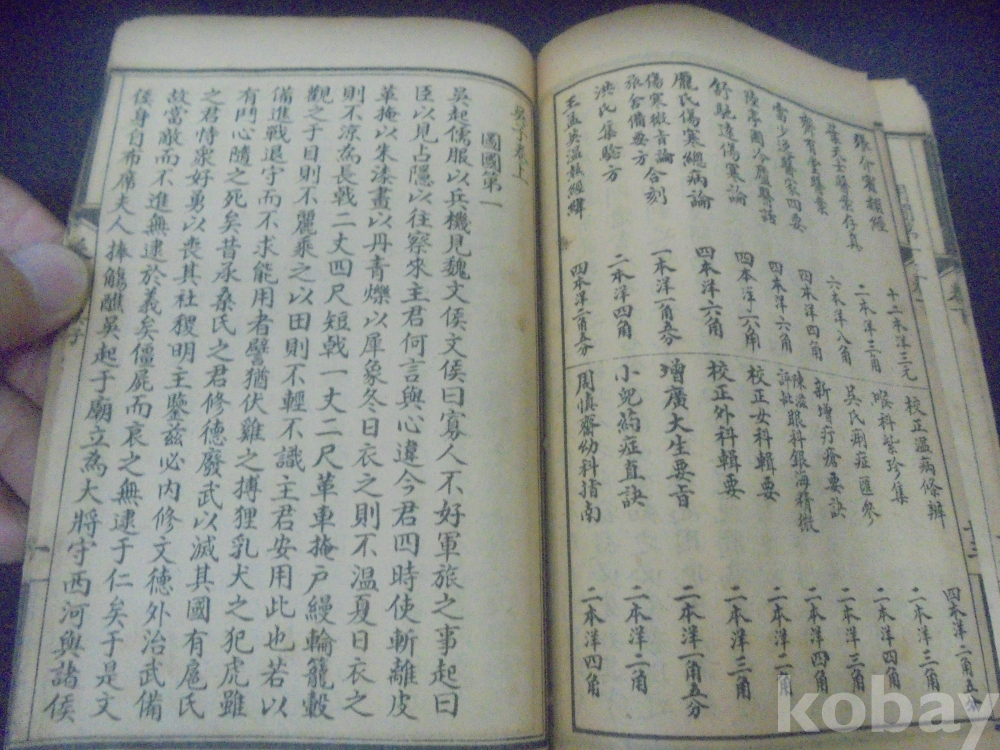 張介賓類經 十二本洋三元
葉天士醫案存真 二本洋三角
齊有堂醫案 六本洋八角
雷少逸醫家四要 四本洋四角
冷廬醫話 四本洋六角
舒馳遠傷寒論 四本洋六角
龐氏傷寒總病論 四本洋六角
傷寒微旨論合刻 一本洋一角五分
旅舍備要方
洪氏集驗方 二本洋四角
王孟英溫熱經緯 四本洋二角五分
校正溫病條辨 四本洋二角五分
喉科紫珍集 二本洋三角
吳氏痢症匯參 二本洋三角
新增疔瘡要訣 二本洋三角
眼科銀海精微 二本洋四角
評批
校正女科輯要 二本洋二角
校正外科輯要 二本洋三角
增廣大生要旨 二本洋一角五分
小兒葯症直訣 二本洋二角
周慎齋幼科指南 二本洋四角
吳子卷上
圖國第一
吳起儒服以兵機見魏文侯文侯曰寡人不好軍旅之事起曰
臣以見占隱以往察來主君何言與心違今君四時使斬離皮
革掩以朱漆畫以丹青爍以犀象冬日衣之則不温夏日衣之
則不涼為長戟二丈四尺短戟一丈二尺革車掩户縵輪籠轂
觀之于目則不麗乘之以田則不輕不識主君安用此也若以
備進戰退守而不求能用者譬猶伏雞之搏狸乳犬之犯虎雖
有鬥心隨之死矣昔承桑氏之君修德廢武以滅其國有扈氏
之君恃衆好勇以喪其社稷明主鑒兹必内修文德外治武備
故當敵而不進無逮於義矣僵屍而哀之無逮于仁矣于是文
侯身自布席夫人捧觴醮吳起于廟立為大將守西河與諸侯
kobay